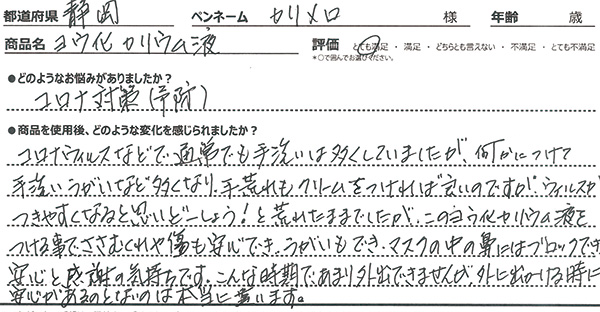 都道府県 静岡 ペンネーム カリメロ 様 年齢 歳
商品名 ヨウ化カリウム液 評価 とても満足・満足・どちらとも言えない・不満足・とても不満足
*○で囲んでお選びください。
●どのようなお悩みがありましたか?
コロナ対策(予防)
●商品を使用後、どのような変化を感じられましたか?
コロナウィルスなどで、通常でも手洗いは多くしていましたが、何かにつけて
手洗い、うがいなど多くなり、手荒れもクリームをつければ良いのですが、ウィルスが
つきやすくなると思いどーしよう!と荒れたままでしたが、このヨウ化カリウム液を
つける事で、ささむくれや傷も安心でき、うがいもでき、マスクの中の鼻にはブロックでき
安心と感謝の気持ちです。こんな時期であまり外出できませんが、外に出かける時に
安心があるのとないのは本当に違います。